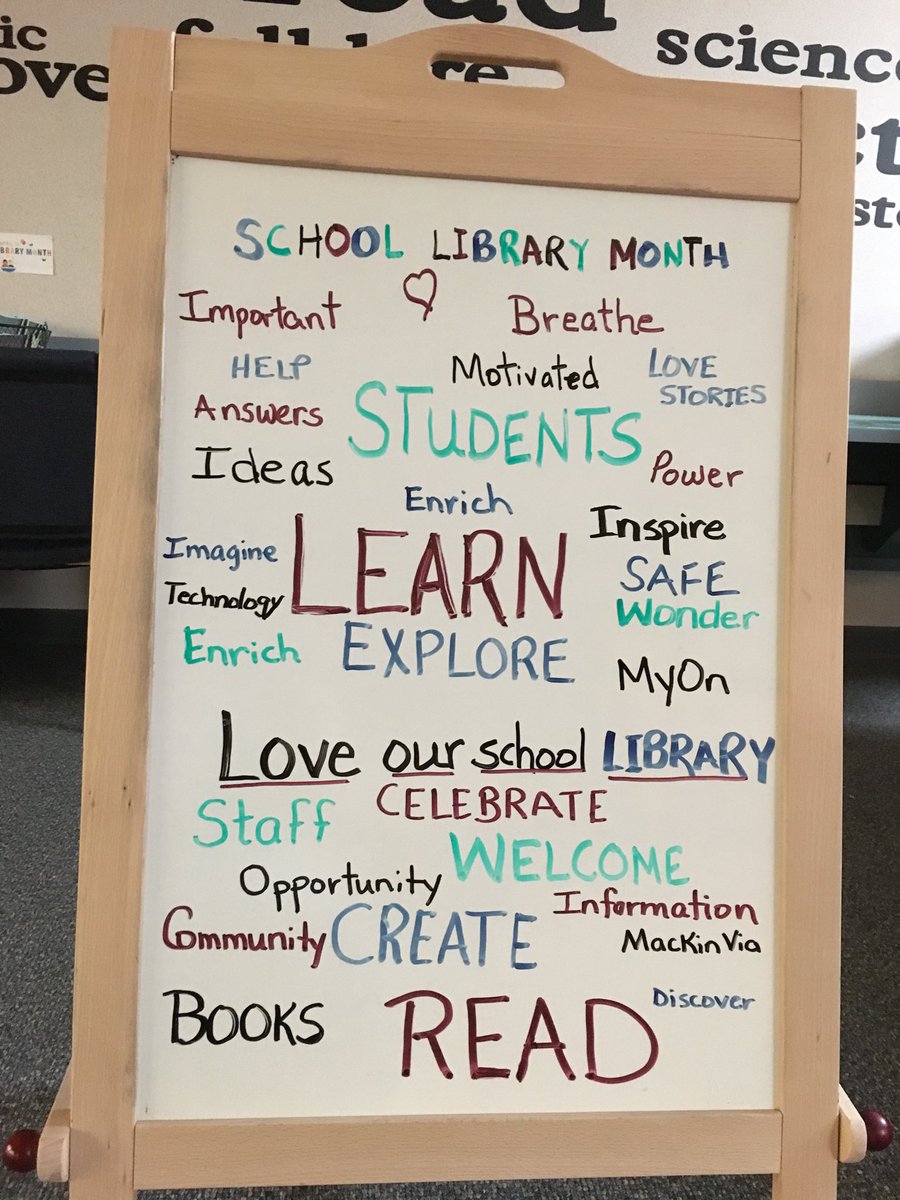 read
ic
folklore
science
ove
SCHOOL LIBRARY MONTH
LIBRARY MONTH
Important
Breathe
HELP
Motivated
LOVE
STORIES
Answers
STUDENTS
Ideas
Power
Enrich
Inspire
Imagine
LEARN
SAFE
Technology
Wonder
Enrich
EXPLORE
MyOn
Love our school LIBRARY
Staff
CELEBRATE
WELCOME
Opportunity
Information
Community
CREATE
MackinVia
BOOKS
READ
Discover